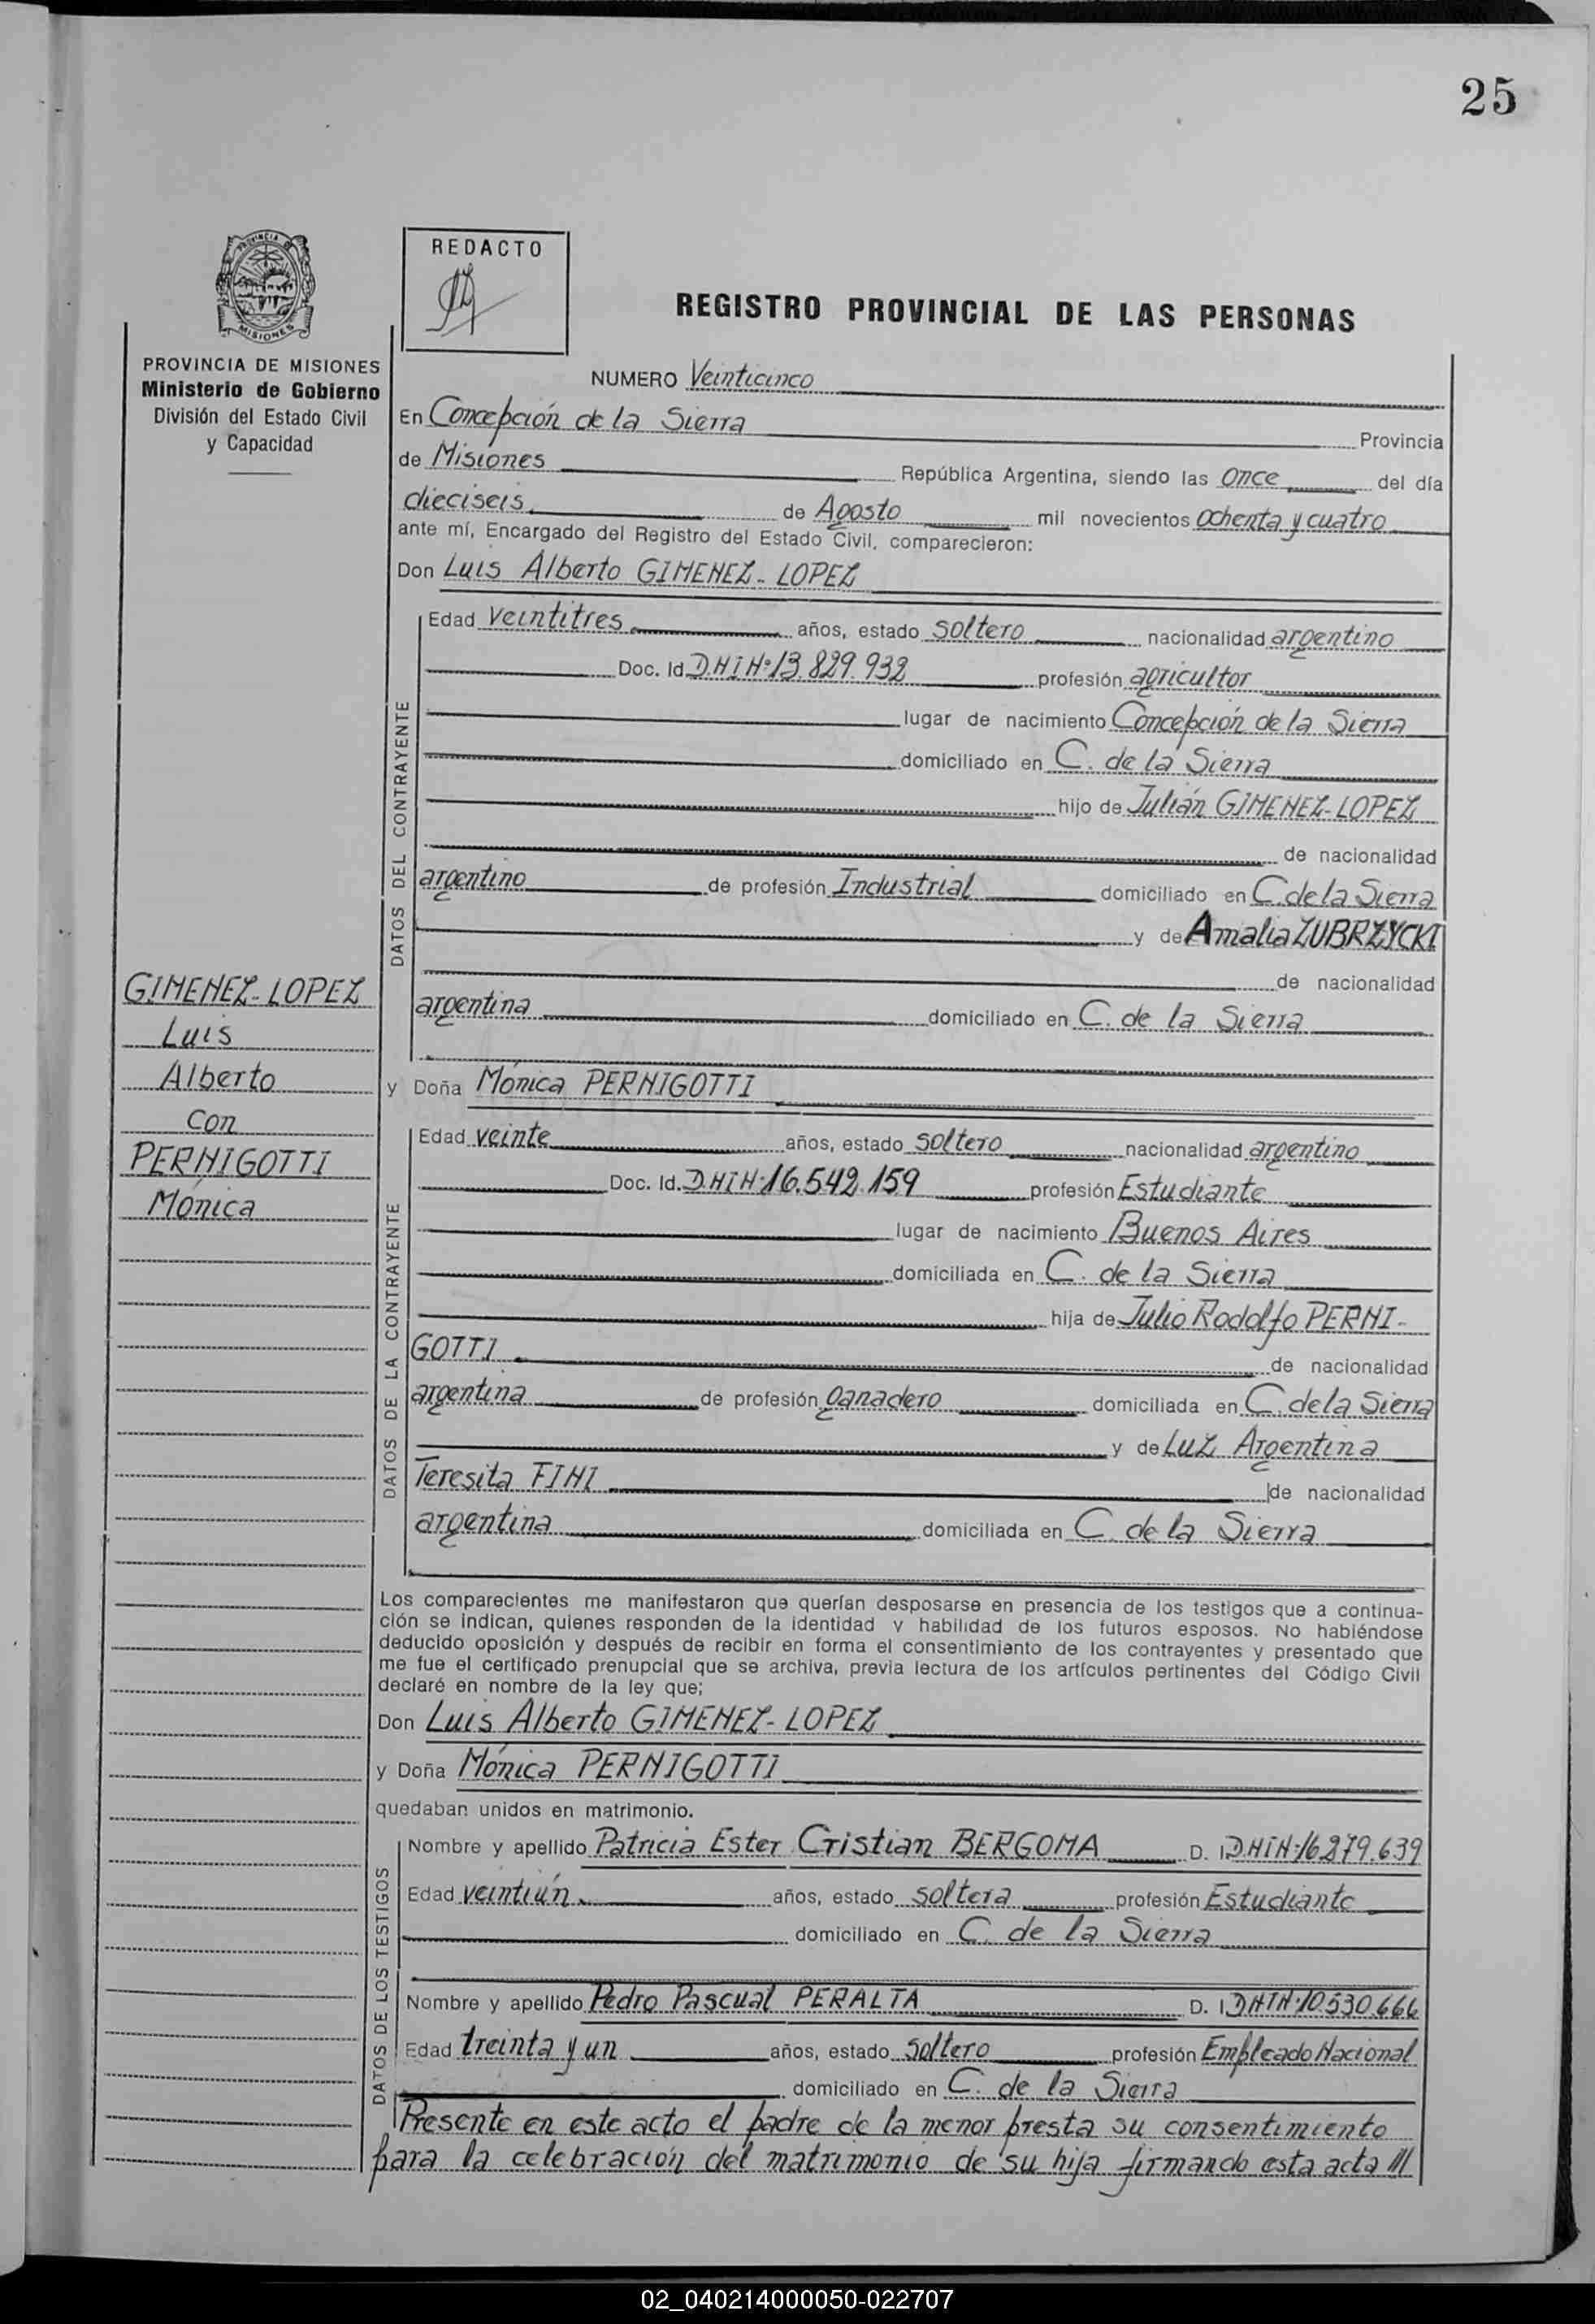 25
PROVINCIA DE
MISIONES
PROVINCIA DE MISIONES
Ministerio de Gobierno
División del Estado Civil
y Capacidad
REDACTO
REGISTRO PROVINCIAL DE LAS PERSONAS
NUMERO Veinticinco
En Concepción de la Sierra Provincia
de Misiones República Argentina, siendo las once del día
dieciseis de Agosto mil novecientos ochenta y cuatro
ante mí, Encargado del Registro del Estado Civil, comparecieron:
Don Luis Alberto GIMENEZ-LOPEZ
DATOS DEL CONTRAYENTE
Edad veintitres años, estado soltero nacionalidad argentino
Doc. Id. D.N.I.Nº 13.829.932 profesión agricultor
lugar de nacimiento Concepción de la Sierra
domiciliado en C. de la Sierra
hijo de Julián GIMENEZ-LOPEZ
de nacionalidad
argentino de profesión Industrial domiciliado en C. de la Sierra
y de Amalia ZUBRZYCKI
de nacionalidad
argentina domiciliado en C. de la Sierra
GIMENEZ-LOPEZ
Luis
Alberto
con
PERNIGOTTI
Mónica
y Doña Mónica PERNIGOTTI
DATOS DE LA CONTRAYENTE
Edad veinte años, estado soltero nacionalidad argentino
Doc. Id. D.N.I.Nº 16.542.159 profesión Estudiante
lugar de nacimiento Buenos Aires
domiciliada en C. de la Sierra
hija de Julio Rodolfo PERNI-
GOTTI de nacionalidad
argentina de profesión ganadero domiciliada en C. de la Sierra
y de Luz Argentina
Teresita FINI de nacionalidad
argentina domiciliada en C. de la Sierra
Los comparecientes me manifestaron que querían desposarse en presencia de los testigos que a continua-
ción se indican, quienes responden de la identidad y habilidad de los futuros esposos. No habiéndose
deducido oposición y después de recibir en forma el consentimiento de los contrayentes y presentado que
me fue el certificado prenupcial que se archiva, previa lectura de los artículos pertinentes del Código Civil
declaré en nombre de la ley que;
Don Luis Alberto GIMENEZ-LOPEZ
y Doña Mónica PERNIGOTTI
quedaban unidos en matrimonio.
DATOS DE LOS TESTIGOS
Nombre y apellido Patricia Ester Cristian BERGOMA D. I. D.N.I.Nº 16.279.639
Edad veintiún años, estado soltera profesión Estudiante
domiciliado en C. de la Sierra
Nombre y apellido Pedro Pascual PERALTA D. I. D.N.I.Nº 10.530.666
Edad treinta y un años, estado soltero profesión Empleado Nacional
domiciliado en C. de la Sierra
Presente en este acto el padre de la menor presta su consentimiento
para la celebración del matrimonio de su hija firmando esta acta ///
02_040214000050-022707